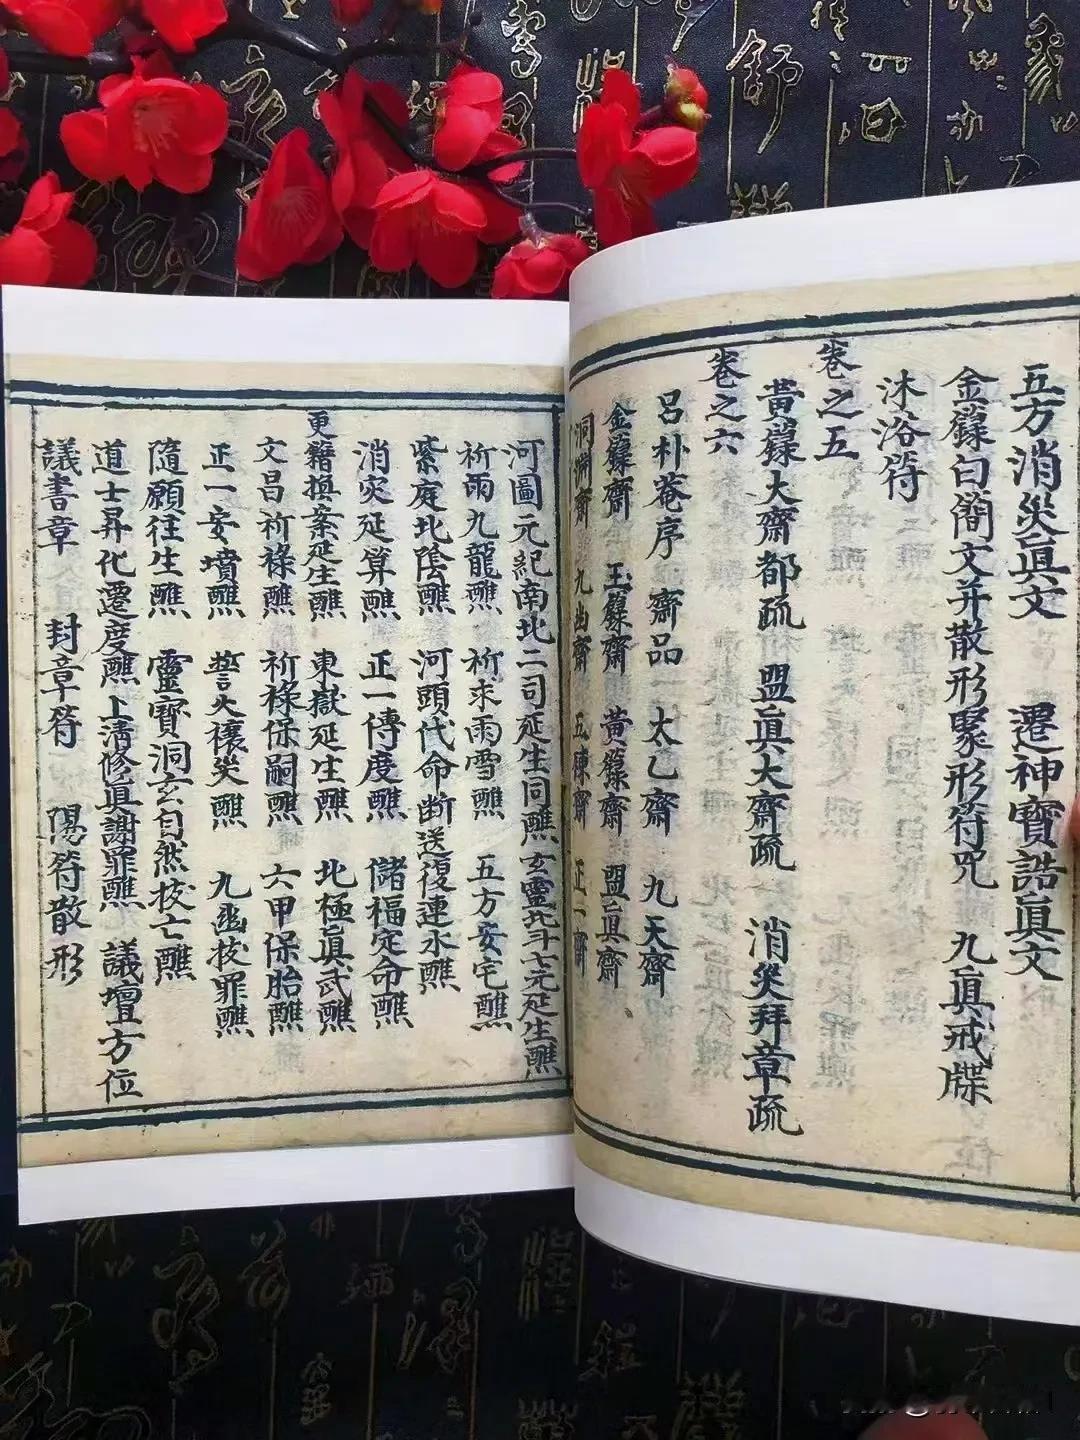 五方消災真文　遷神寶誥真文
金籙白簡文并散形聚形符咒　九真戒牒
沐浴符
卷之五
黃籙大齋都疏　盟真大齋疏　消災拜章疏
卷之六
呂朴菴序　齋品　太乙齋　九天齋
金籙齋　玉籙齋　黃籙齋　盟真齋
洞淵齋　九幽齋　五煉齋　正一齋
河圖元紀南北二司延生同醮　玄靈北斗七元延生醮
祈雨九龍醮　祈求雨雪醮　五方安宅醮
紫庭北陰醮　河頭代命斷送復連水醮
消灾延算醮　正一傳度醮　儲福定命醮
更籍換案延生醮　東嶽延生醮　北極真武醮
文昌祈祿醮　祈祿保嗣醮　六甲保胎醮
正一安墳醮　誓火禳災醮　九幽拔罪醮
隨願往生醮　靈寶洞玄自然拔亡醮
道士昇化遷度醮　上清修真謝罪醮　議壇方位
議書章　封章符　陽符散形